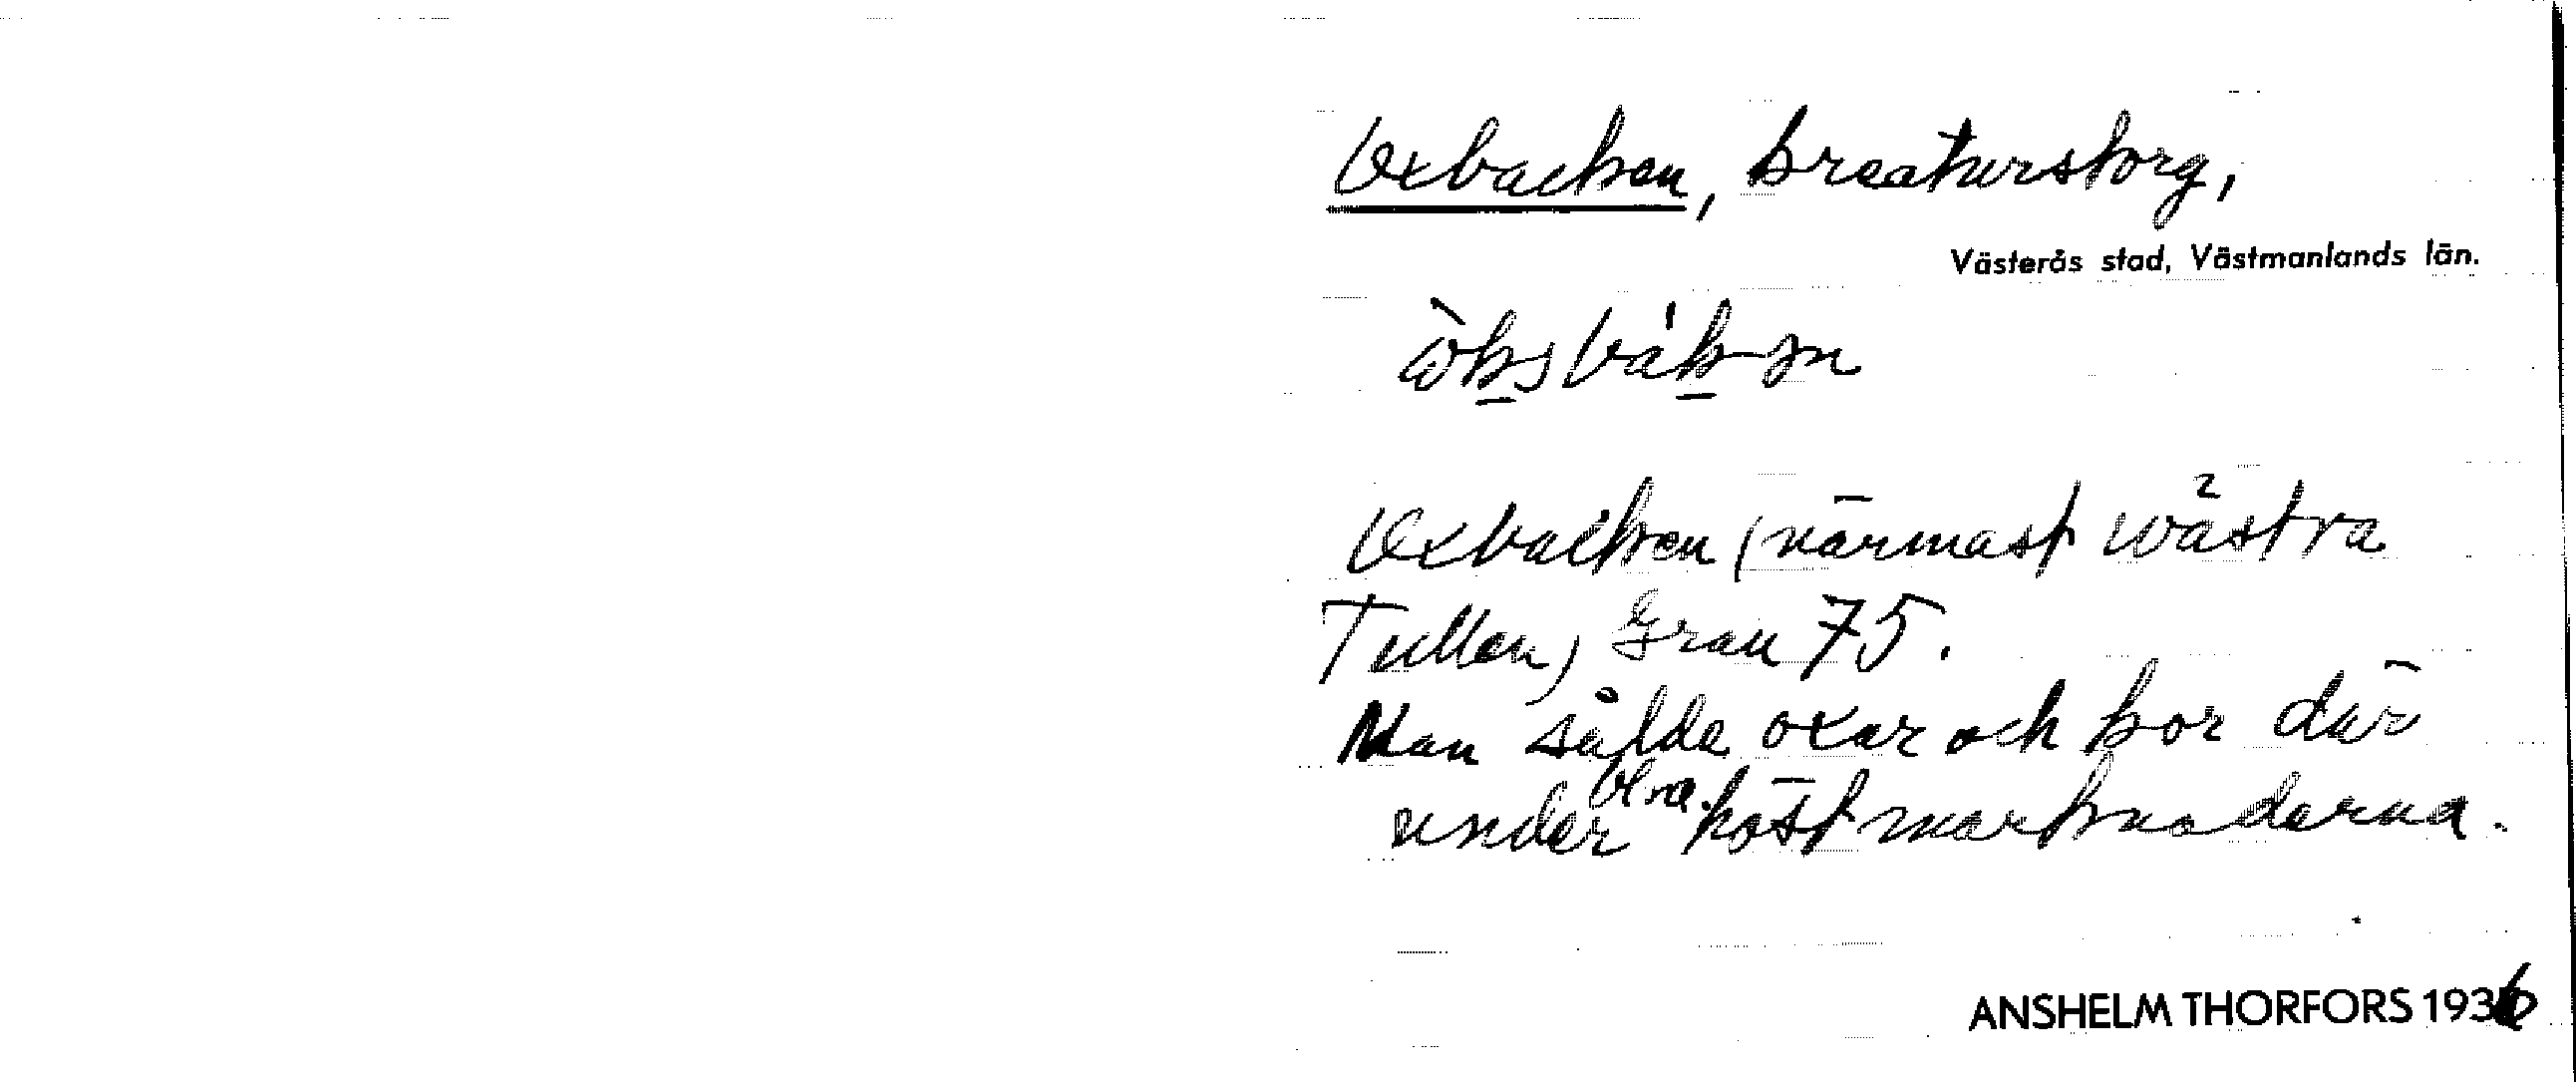 Oxbacken, kreaturstorg,
Västerås stad, Västmanlands län.
Oxbacken (närmast wästra
Tullen) Grau 75.
Man sålde oxar och kor där
under bl.a. höstmarknaderna.
ANSHELM THORFORS 1936